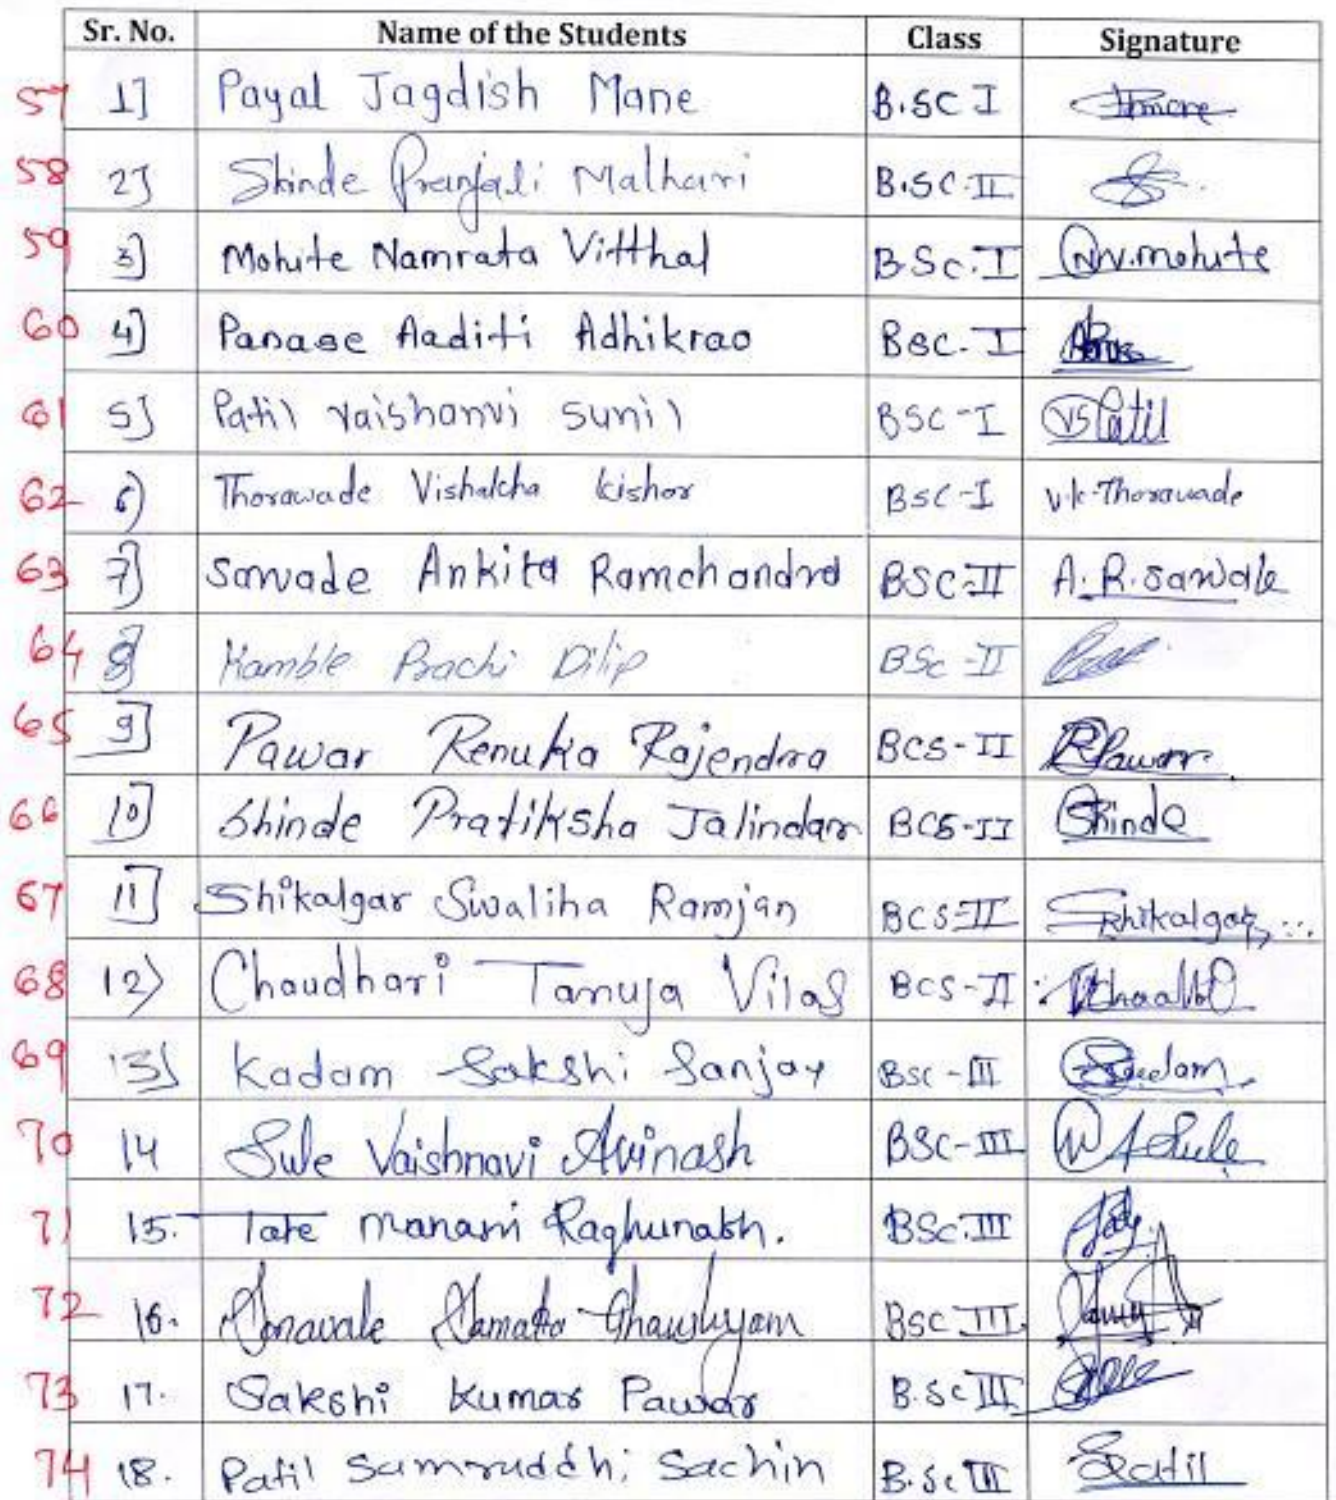 Sr. No. Name of the Students Class Signature
57 1] Payal Jagdish Mane B.SC I
58 2] Shinde Pranjali Malhari B.SC.II
59 3] Mohite Namrata Vitthal B.Sc.I N.V.mohite
60 4] Panase Aaditi Adhikrao BSC.I
61 5] Patil vaishanvi sunil BSC-I VSPatil
62 6) Thorawade Vishakha kishor BSC-I V.k.Thorawade
63 7] Sawade Ankita Ramchandra BSC-II A.R.sawade
64 8] Kamble Prachi Dilip BSc-II
65 9] Pawar Renuka Rajendra BCS-II RPawar.
66 10] Shinde Pratiksha Jalindar BCS-II Shinde
67 11] Shikalgar Swaliha Ramjan BCS-II Shikalgar
68 12) Chaudhari Tanuja Vilas BCS-II
69 13] Kadam Sakshi Sanjay BSC-III
70 14 Sule Vaishnavi Avinash BSC-III VASule
71 15. Tate manasi Raghunath. BSc.III
72 16. BSC III
73 17. Sakshi Kumar Pawar B.Sc III
74 18. Patil Samruddhi Sachin B.Sc III SPatil